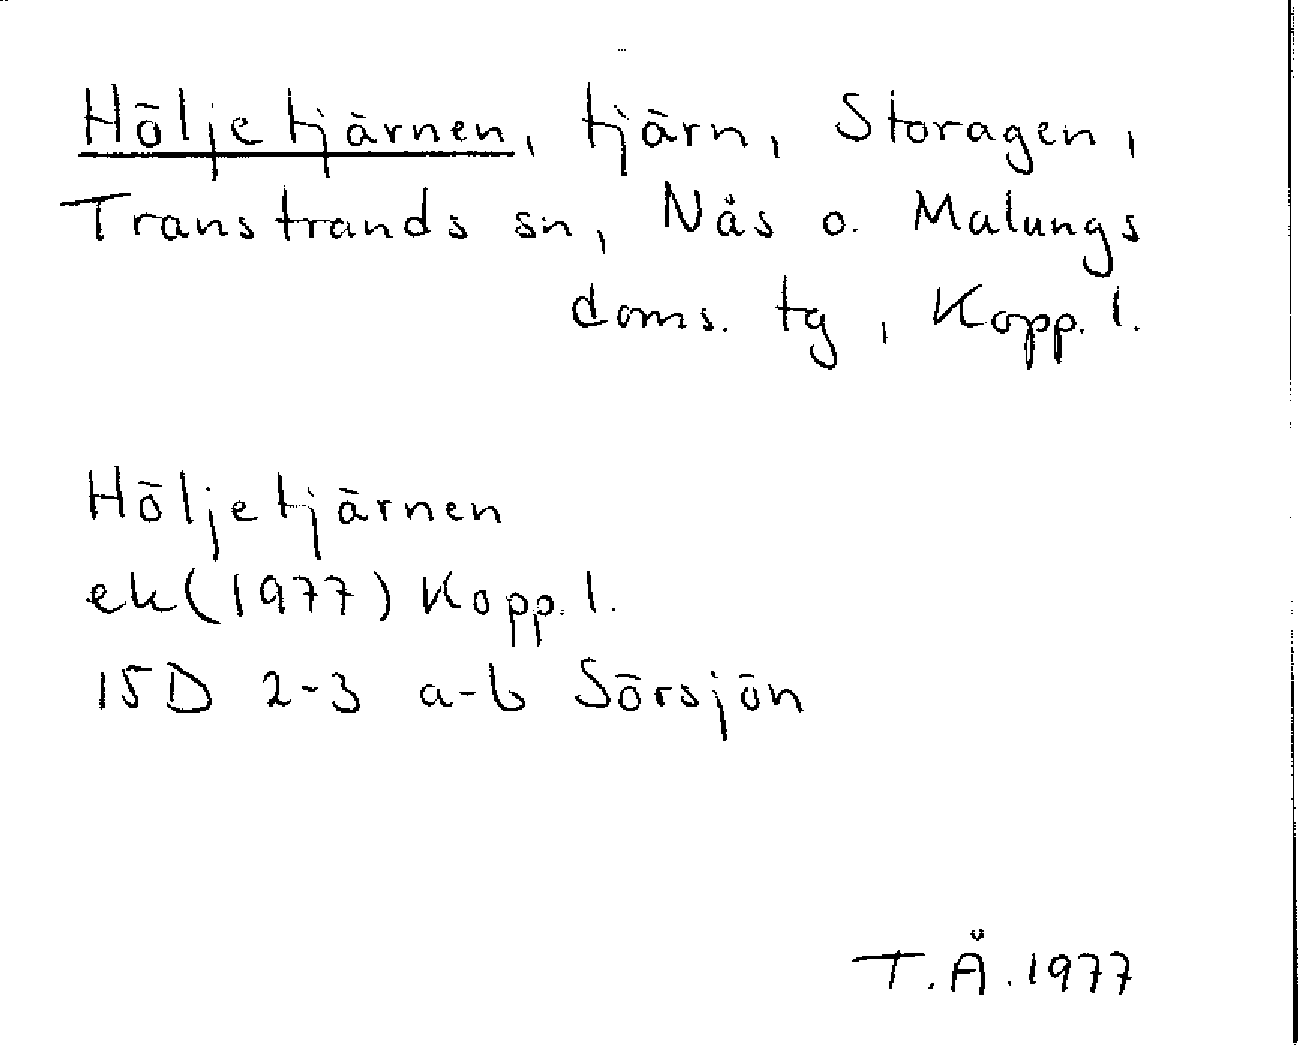 Höljetjärnen, tjärn, Storagen,
Transtrands sn, Nås o. Malungs
doms. tg, Kopp. l.
Höljetjärnen
ek (1977) Kopp. l.
15D 2-3 a-b Sörsjön
T.Å. 1977